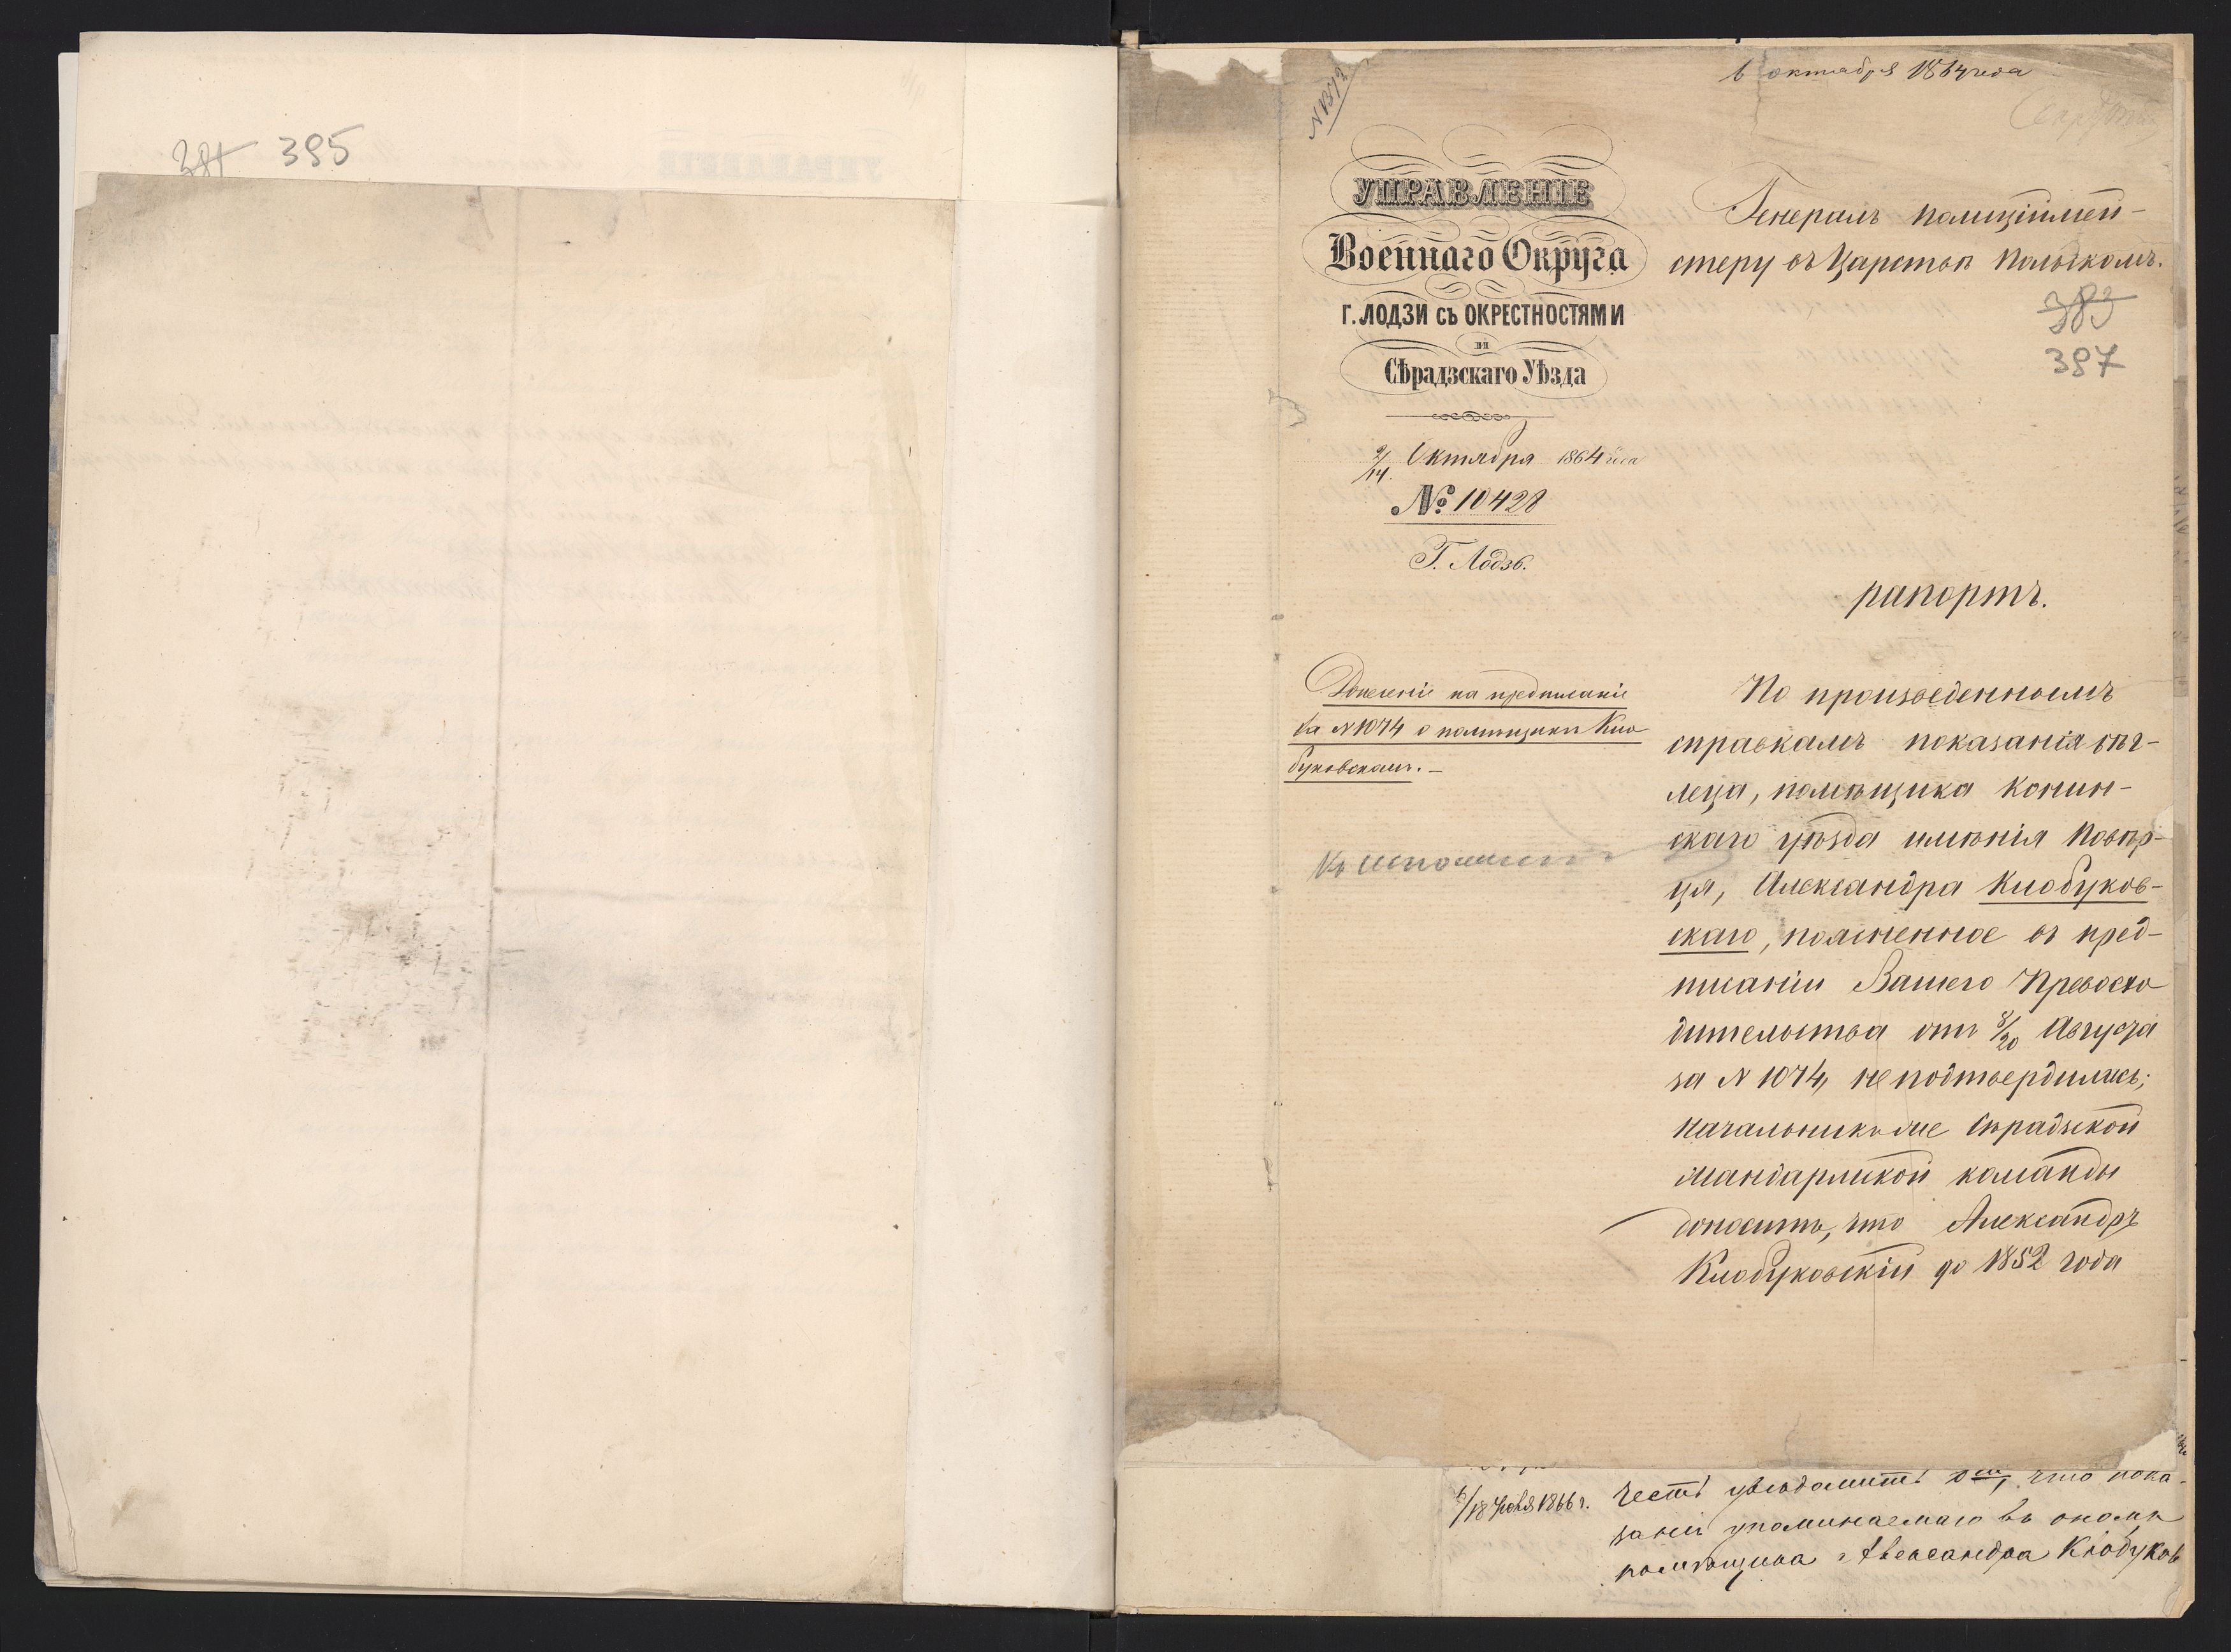 381 395
N 1372
6 октября 1864 года
УПРАВЛЕНІЕ
Военнаго Округа
Г. ЛОДЗИ СЪ ОКРЕСТНОСТЯМИ
и
Сѣрадзскаго Уѣзда
2/14. Октября 1864 года
№ 10428
Г. Лодзь.
Генералъ Полиціймей-
стеру въ Царствѣ Польскомъ.
383
387
рапортъ.
Донесеніе на предписаніе
за N 1074 о помѣщикѣ Кло
буковскомъ. —
По произведеннымъ
справкамъ показанія бѣг-
леца, помѣщика Конин-
скаго уѣзда имѣнія Повѣр-
ця, Александра Клобуков-
скаго, поясненное въ пред-
писаніи Вашего Превосхо
дительства отъ 8/20 Августа
за N 1074, не подтвердились;
Начальникъ же Сѣрадзской
жандармской команды
доноситъ, что Александръ
Клобуковскій до 1852 года
6/18 1866 г.
честь увѣдомить что пока-
заній упоминаемаго въ ономъ
помѣщика Александра Клобуков